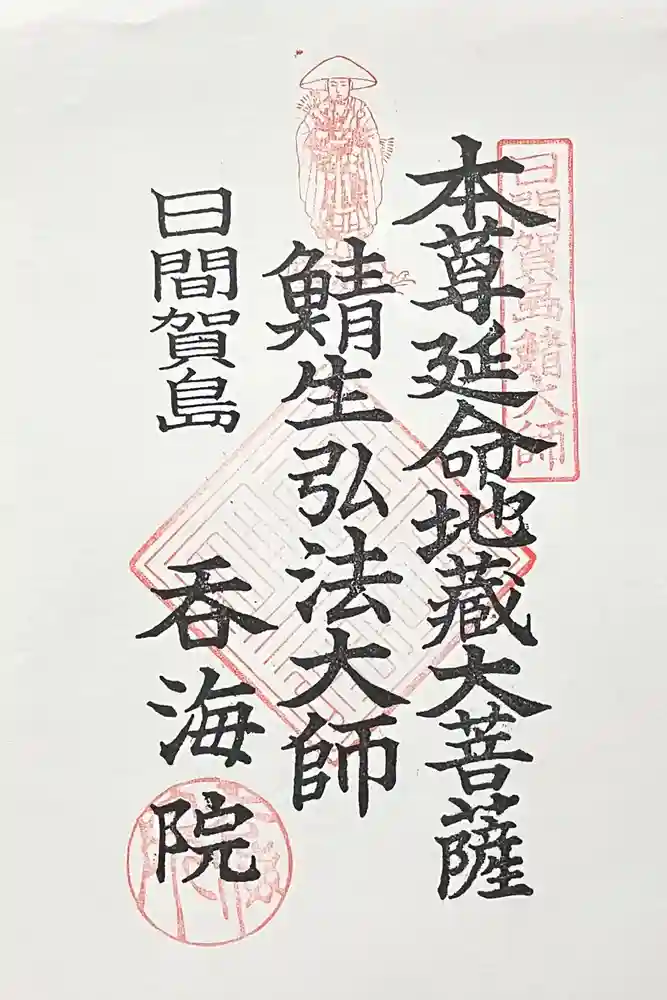 日間賀島鯖大師
本尊延命地蔵大菩薩
鯖生弘法大師
日間賀島
呑海院